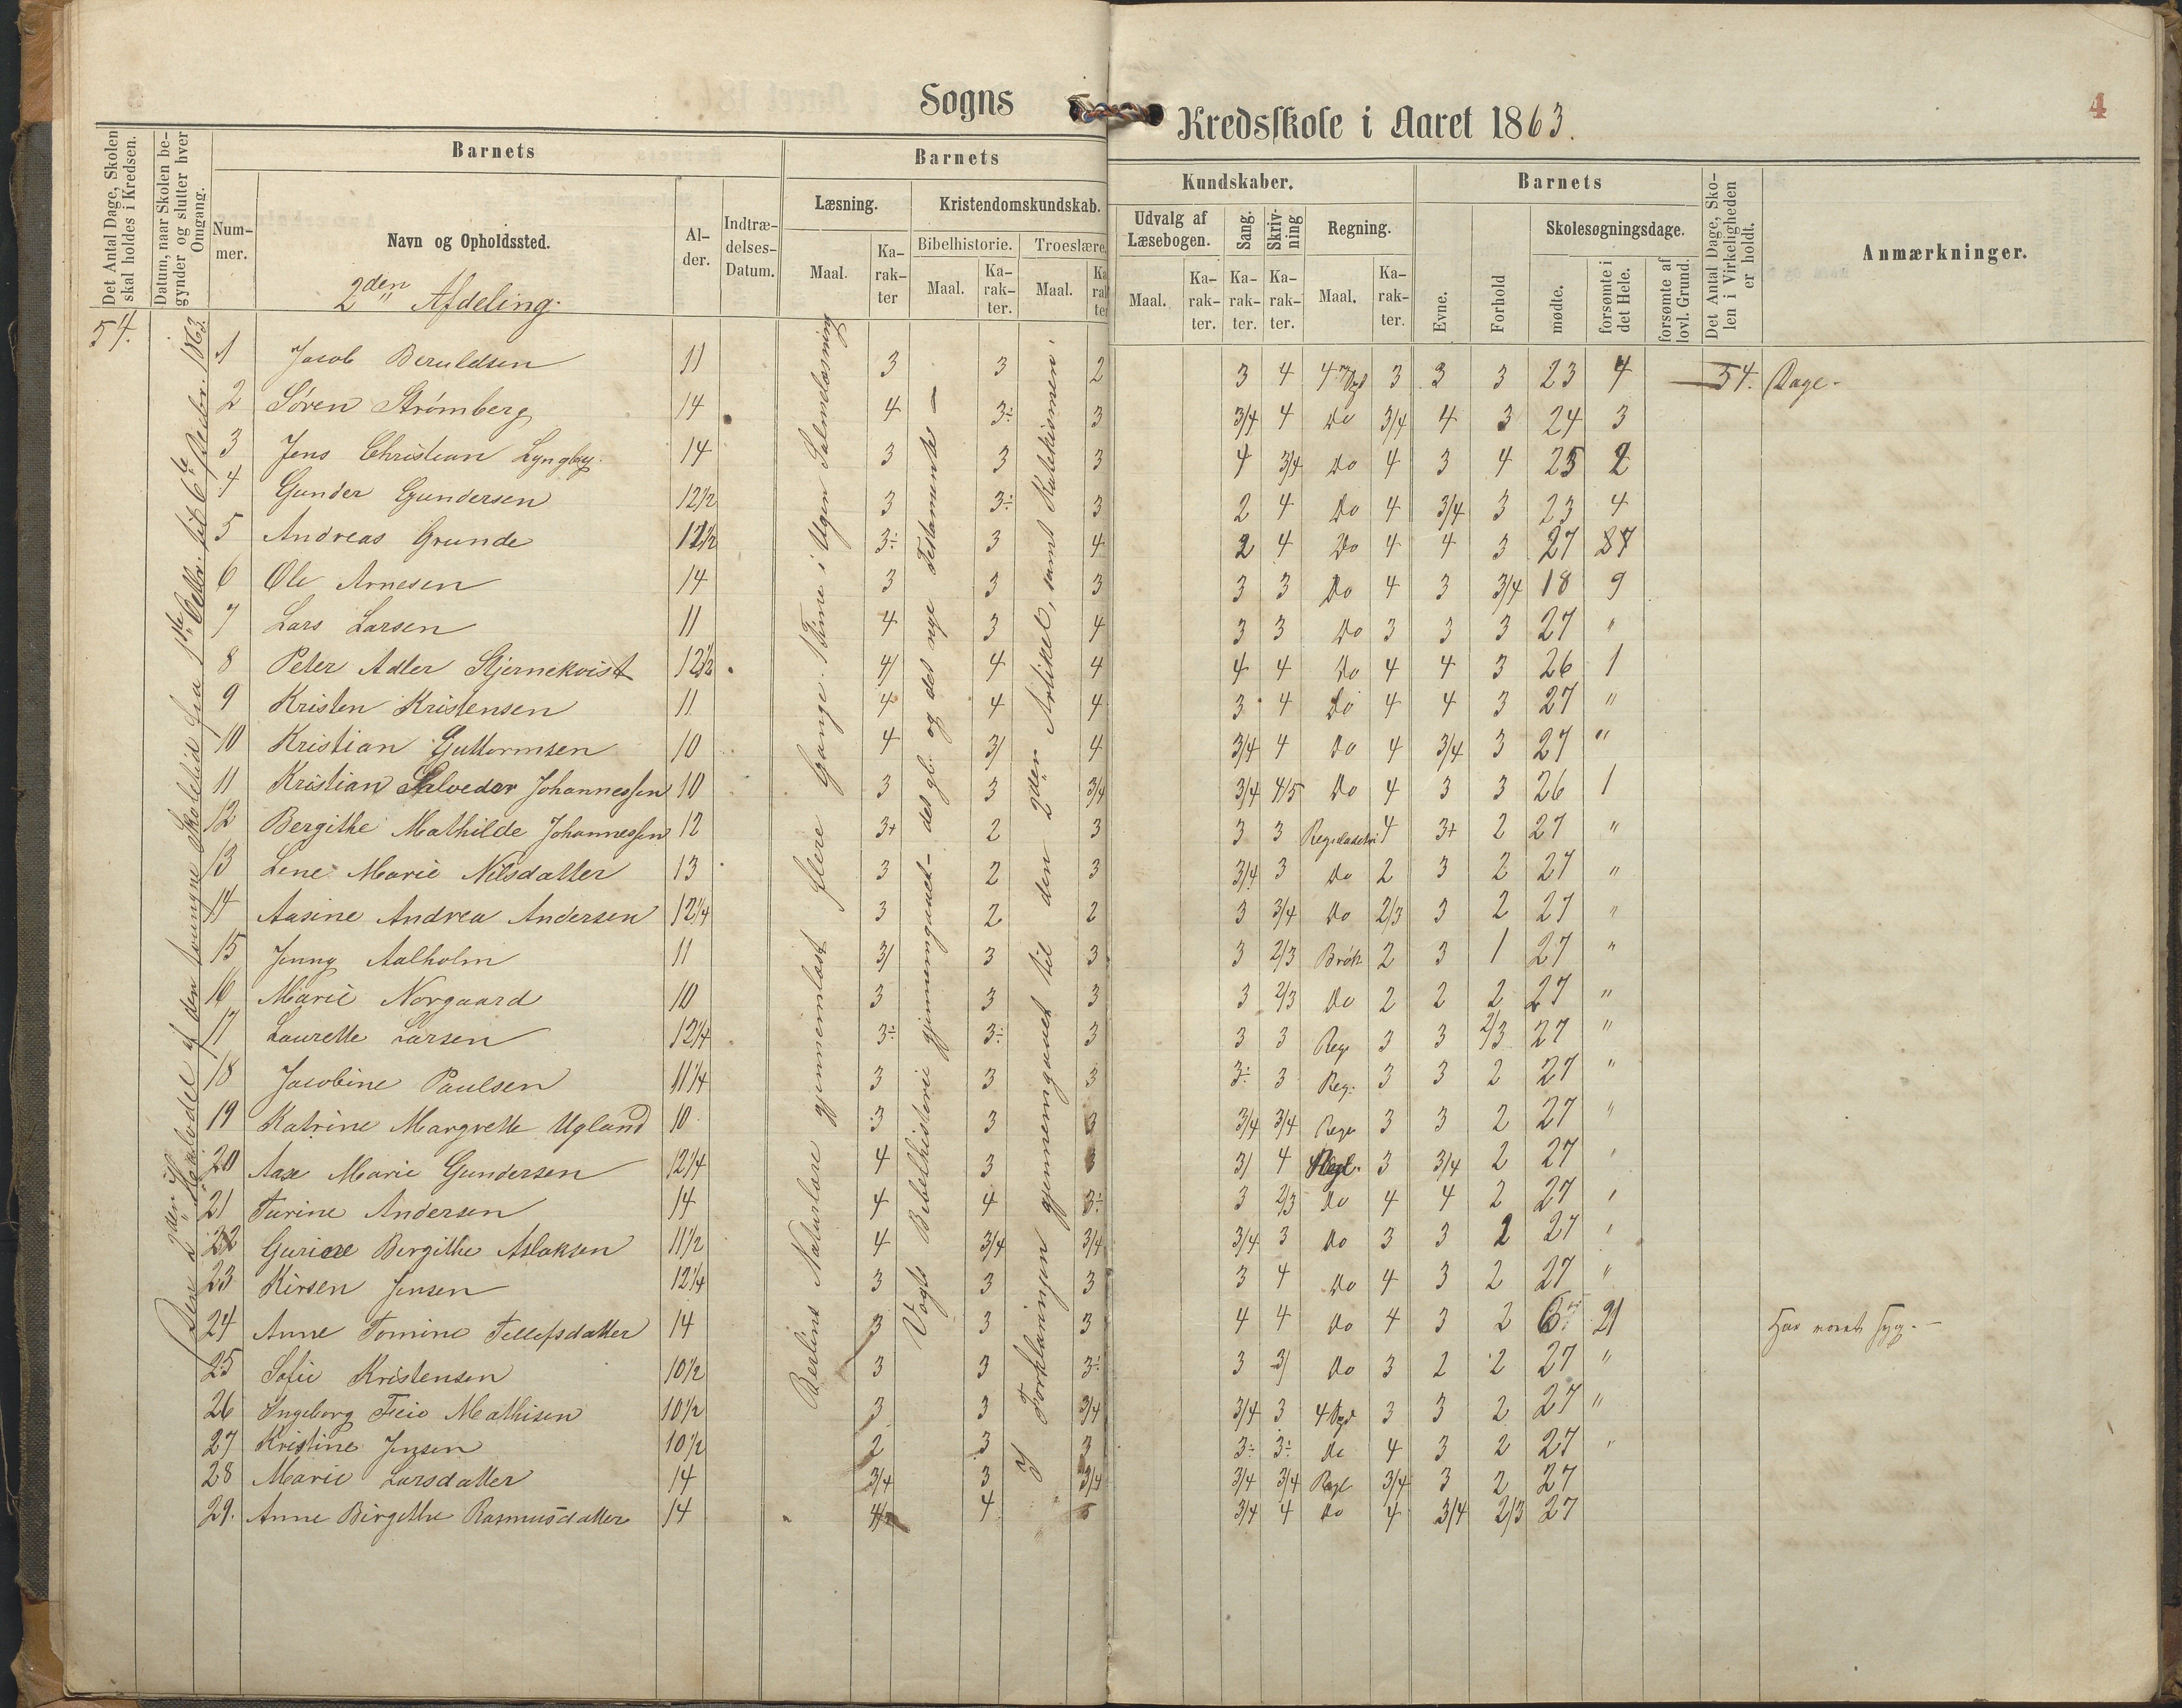 Sogns
Kredsskole i Aaret 1863.
4
Det Antal Dage, Skolen skal holdes i Kredsen.
Datum, naar Skolen begynder og slutter hver Omgang.
Barnets
Nummer.
Navn og Opholdssted.
Alder.
Indtrædelses-Datum.
Barnets
Kundskaber.
Læsning.
Maal.
Karakter
Kristendomskundskab.
Bibelhistorie.
Maal.
Karakter.
Troeslære.
Maal.
Udvalg af Læsebogen.
Maal.
Karakter.
Sang.
Karakter.
Skrivning
Karakter.
Regning.
Maal.
Karakter.
Barnets
Evne.
Forhold
Skolesøgningsdage.
mødte.
forsømte i det Hele.
forsømte af lovl. Grund.
Det Antal Dage, Skolen i Virkeligheden er holdt.
Anmærkninger.
2den Afdeling.
54.
Den 2den Halvdel af den tvungne Skoletid fra 1ste Octbr. til 6te Decbr. 1863.
Berlins Naturlære gjennemlæst flere Gange. 1 Time i Ugen Salmelæsning
Vogts Bibelhistorie gjennemgaaet – det gl. og det nye Testamente –
I Forklaringen gjennemgaaet til den 2den Artikel, samt Katekismen.
1 Jacob Beruldsen 11 3 3 2 3 4 3 3 3 23 4 54. Dage.
2 Søren Strømberg 14 4 3÷ 3 3/4 4 Do 3/4 4 3 24 3
3 Jens Christian Lyngby. 14 3 3 3 4 3/4 Do 4 3 4 25 2
4 Gunder Gundersen 12½ 3 3÷ 3 2 4 Do 4 3/4 3 23 4
5 Andreas Grunde 12½ 3÷ 3 4 2 4 Do 4 4 3 27
6 Ole Arnesen 14 3 3 3 3 3 Do 4 3 3/4 18 9
7 Lars Larsen 11 4 3 4 3 3 Do 3 3 3 27 "
8 Peter Adler Stjernekvist 12½ 4/ 4 4 4 4 Do 4 4 3 26 1
9 Kristen Kristensen 11 4 4 4 3 4 Do 4 4 3 27 "
10 Kristian Guttormsen 10 4 3/ 4 3/4 4 Do 4 3/4 3 27 "
11 Kristian Salveder Johannessen 10 3 3 3/4 3/4 4/5 Do 4 3 3 26 1
12 Bergithe Mathilde Johannessen 12 3+ 2 3 3 3 4 3+ 2 27 "
13 Lene Marie Nilsdatter 13 3 2 3 3/4 3 Do 2 3 2 27 "
14 Aasine Andrea Andersen 12¼ 3 2 2 3 3/4 Do 2/3 3 2 27 "
15 Jenny Aalholm 11 3/ 3 3 3 2/3 Brøk 2 3 1 27 "
16 Marie Norgaard 10 3 3 3 3 2/3 Do 2 2 2 27 "
17 Laurette Larsen 12¼ 3÷ 3÷ 3 3 3 Reg. 3 3 2/3 27 "
18 Jacobine Paulsen 11¼ 3 3 3 3÷ 3 Reg. 3 3 2 27 "
19 Katrine Margrette Ugland 10 3 3 3 3/4 3/4 Reg. 3 3 2 27 "
20 Aase Marie Gundersen 12¼ 4 3 3 3/ 4 Regl. 3 3/4 2 27 "
21 Turine Andersen 14 4 4 3÷ 3 2/3 Do 4 4 2 27 "
22 Gurine Birgithe Aslaksen 11½ 4 3/4 3/4 3/4 3 Do 3 3 2 27 "
23 Kirsen Jensen 12¼ 3 3 3 3 4 Do 4 3 2 27 "
24 Anne Tomine Tellefsdatter 14 3 3 3 4 4 Do 4 3 2 6 21 Har været syg. –
25 Sofie Kristensen 10½ 3 3 3÷ 3 3/ Do 3 2 2 27 "
26 Ingeborg Feio Mathisen 10½ 3 3 3/4 3/4 3 3 3 2 27 "
27 Kristine Jensen 10½ 2 3 3 3÷ 3÷ Do 4 3 2 27 "
28 Marie Larsdatter 14 3/4 3 3/4 3/4 3/4 Regl 3/4 3 2 27
29. Anne Birgithe Rasmusdatter 14 4 5 3/4 4 Do 4 3/4 2/3 27